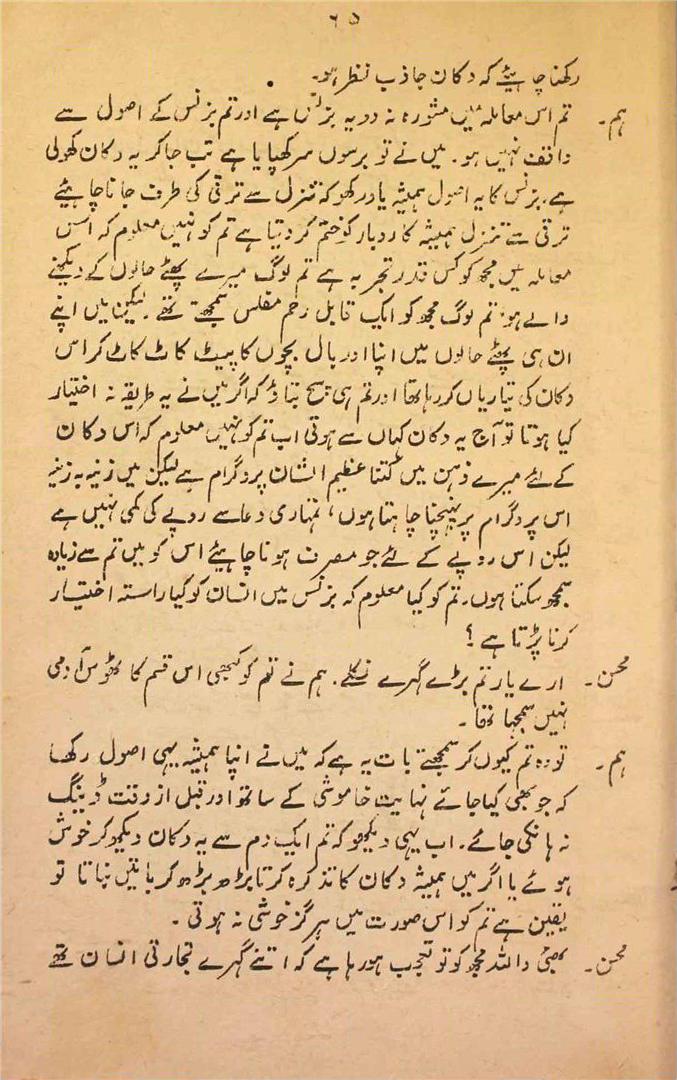 ۶۵
رکھنا چاہیئے کہ دکان جاذب نظر ہو۔
ہم۔ تم اس معاملہ میں مشورہ نہ دو یہ بزنس ہے اور تم بزنس کے اصول سے
واقف نہیں ہو۔ میں نے تو برسوں سر کھپایا ہے تب جا کر یہ دکان کھولی
ہے۔ بزنس کا یہ اصول ہمیشہ یاد رکھو کہ تنزل سے ترقی کی طرف جانا چاہیئے
ترقی سے تنزل ہمیشہ کاروبار کو ختم کر دیتا ہے تم کو نہیں معلوم کہ اس
معاملہ میں مجھ کو کس قدر تجربہ ہے تم لوگ میرے پھٹے حالوں کے دیکھنے
والے ہو، تم لوگ مجھ کو ایک قابل رحم مفلس سمجھتے تھے۔ لیکن میں اپنے
ان ہی پھٹے حالوں میں اپنا اور بال بچوں کا پیٹ کاٹ کاٹ کر اس
دکان کی تیاریاں کر رہا تھا اور تم ہی سچ بتاؤ کہ اگر میں نے یہ طریقہ نہ اختیار
کیا ہوتا تو آج یہ دکان کہاں سے ہوتی اب تم کو نہیں معلوم کہ اس دکان
کے لئے میرے ذہن میں کتنا عظیم الشان پروگرام ہے لیکن میں زینہ بہ زینہ
اس پروگرام پر پہنچنا چاہتا ہوں، تمہاری دعا سے روپے کی کمی نہیں ہے
لیکن اس روپے کے لئے جو مصرف ہونا چاہیئے اس کو میں تم سے زیادہ
سمجھ سکتا ہوں۔ تم کو کیا معلوم کہ بزنس میں انسان کو کیا راستہ اختیار
کرنا پڑتا ہے؟
محسن۔ ارے یار تم بڑے گہرے نکلے۔ ہم نے تم کو کبھی اس قسم کا ٹھوس آدمی
نہیں سمجھا تھا۔
ہم۔ تو وہ تم کیوں کر سمجھتے بات یہ ہے کہ میں نے اپنا ہمیشہ یہی اصول رکھا
کہ جو بھی کیا جائے نہایت خاموشی کے ساتھ اور قبل از وقت ڈینگ
نہ ہانکی جائے۔ اب یہی دیکھو کہ تم ایک دم سے یہ دکان دیکھ کر خوش
ہوئے یا اگر میں ہمیشہ دکان کا تذکرہ کرتا بڑھ بڑھ کر باتیں بناتا تو
یقین ہے تم کو اس صورت میں ہرگز خوشی نہ ہوتی۔
محسن۔ بھئی واللہ مجھ کو تو تعجب ہو رہا ہے کہ اتنے گہرے تجارتی انسان تھے